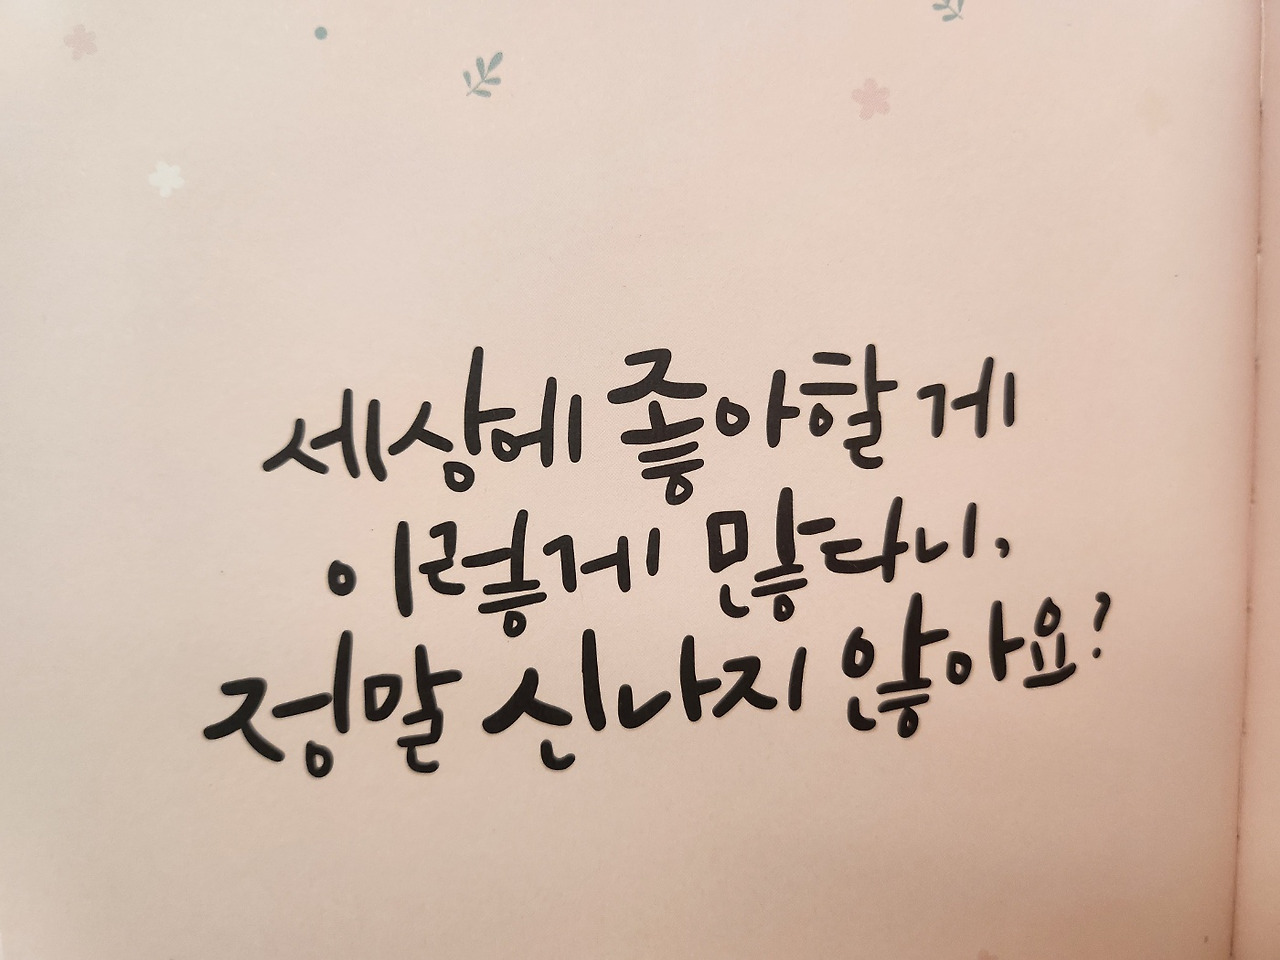 세상에 좋아할 게
이렇게 많다니,
정말 신나지 않아요?